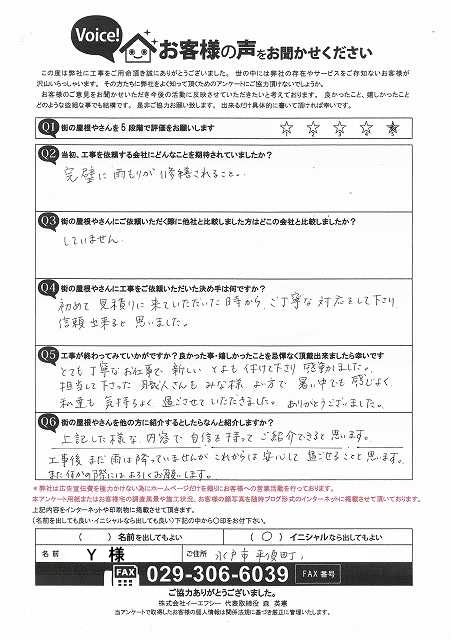 Voice!
お客様の声をお聞かせください
この度は弊社に工事をご用命頂き誠にありがとうございました。世の中には弊社の存在やサービスをご存知ないお客様が
沢山いらっしゃいます。その方たちに弊社をよく知って頂くためのアンケートにご協力頂けないでしょうか。
お客様のご意見をお聞かせいただき今後の活動に反映させていただきたいと考えております。良かったこと、嬉しかったこと
どのような些細な事でも結構です。是非ご協力お願い致します。出来るだけ具体的に書いて頂ければ幸いです。
Q1 街の屋根やさんを5段階で評価をお願いします ☆ ☆ ☆ ☆ ★
Q2 当初、工事を依頼する会社にどんなことを期待されていましたか?
完璧に雨もりが修繕されること。
Q3 街の屋根やさんにご依頼いただく際に他社と比較しました方はどこの会社と比較しましたか?
していません
Q4 街の屋根やさんに工事をご依頼いただいた決め手は何ですか?
初めて見積りに来ていただいた時から、ご丁寧な対応をして下さり
信頼出来ると思いました。
Q5 工事が終わってみていかがですか?良かった事・嬉しかったことを忌憚なく頂戴出来ましたら幸いです
とても丁寧なお仕事で、新しい とよも付け下さり 感動しました。
担当して下さった 職人さんも みな様、お方で 暑い中でも感じよく、
私達も気持ちよく過ごさせていただきました。ありがとうございました。
Q6 街の屋根やさんを他の方に紹介するとしたらなんと紹介しますか?
上記した様な内容で自信を持ってご紹介できると思います。
工事後まだ雨は降っていませんが、これからは安心して過ごせることと思います。
また何かの際にはよろしくお願いします。
*弊社は広告宣伝費を極力かけない為にホームページだけを頼りにお客様への営業活動を行っております。
本アンケート用紙またはお客様宅の調査風景や施工状況、お客様の顔写真を随時ブログ形式のインターネットに掲載させて頂いております。
上記内容をインターネットや印刷物に掲載させて頂きます。
(名前を出しても良い・イニシャルなら出しても良い)下記の中から○印をお付下さい。
( )名前を出してもよい (○)イニシャルなら出してもよい
名前 Y 様 ご住所 水戸市平須町
FAX 029-306-6039 FAX番号
ご協力ありがとうございました。
株式会社イーエフシー 代表取締役 森 英憲
当アンケートで取得したお客様の個人情報は関係法規に基づき厳正に管理いたします。